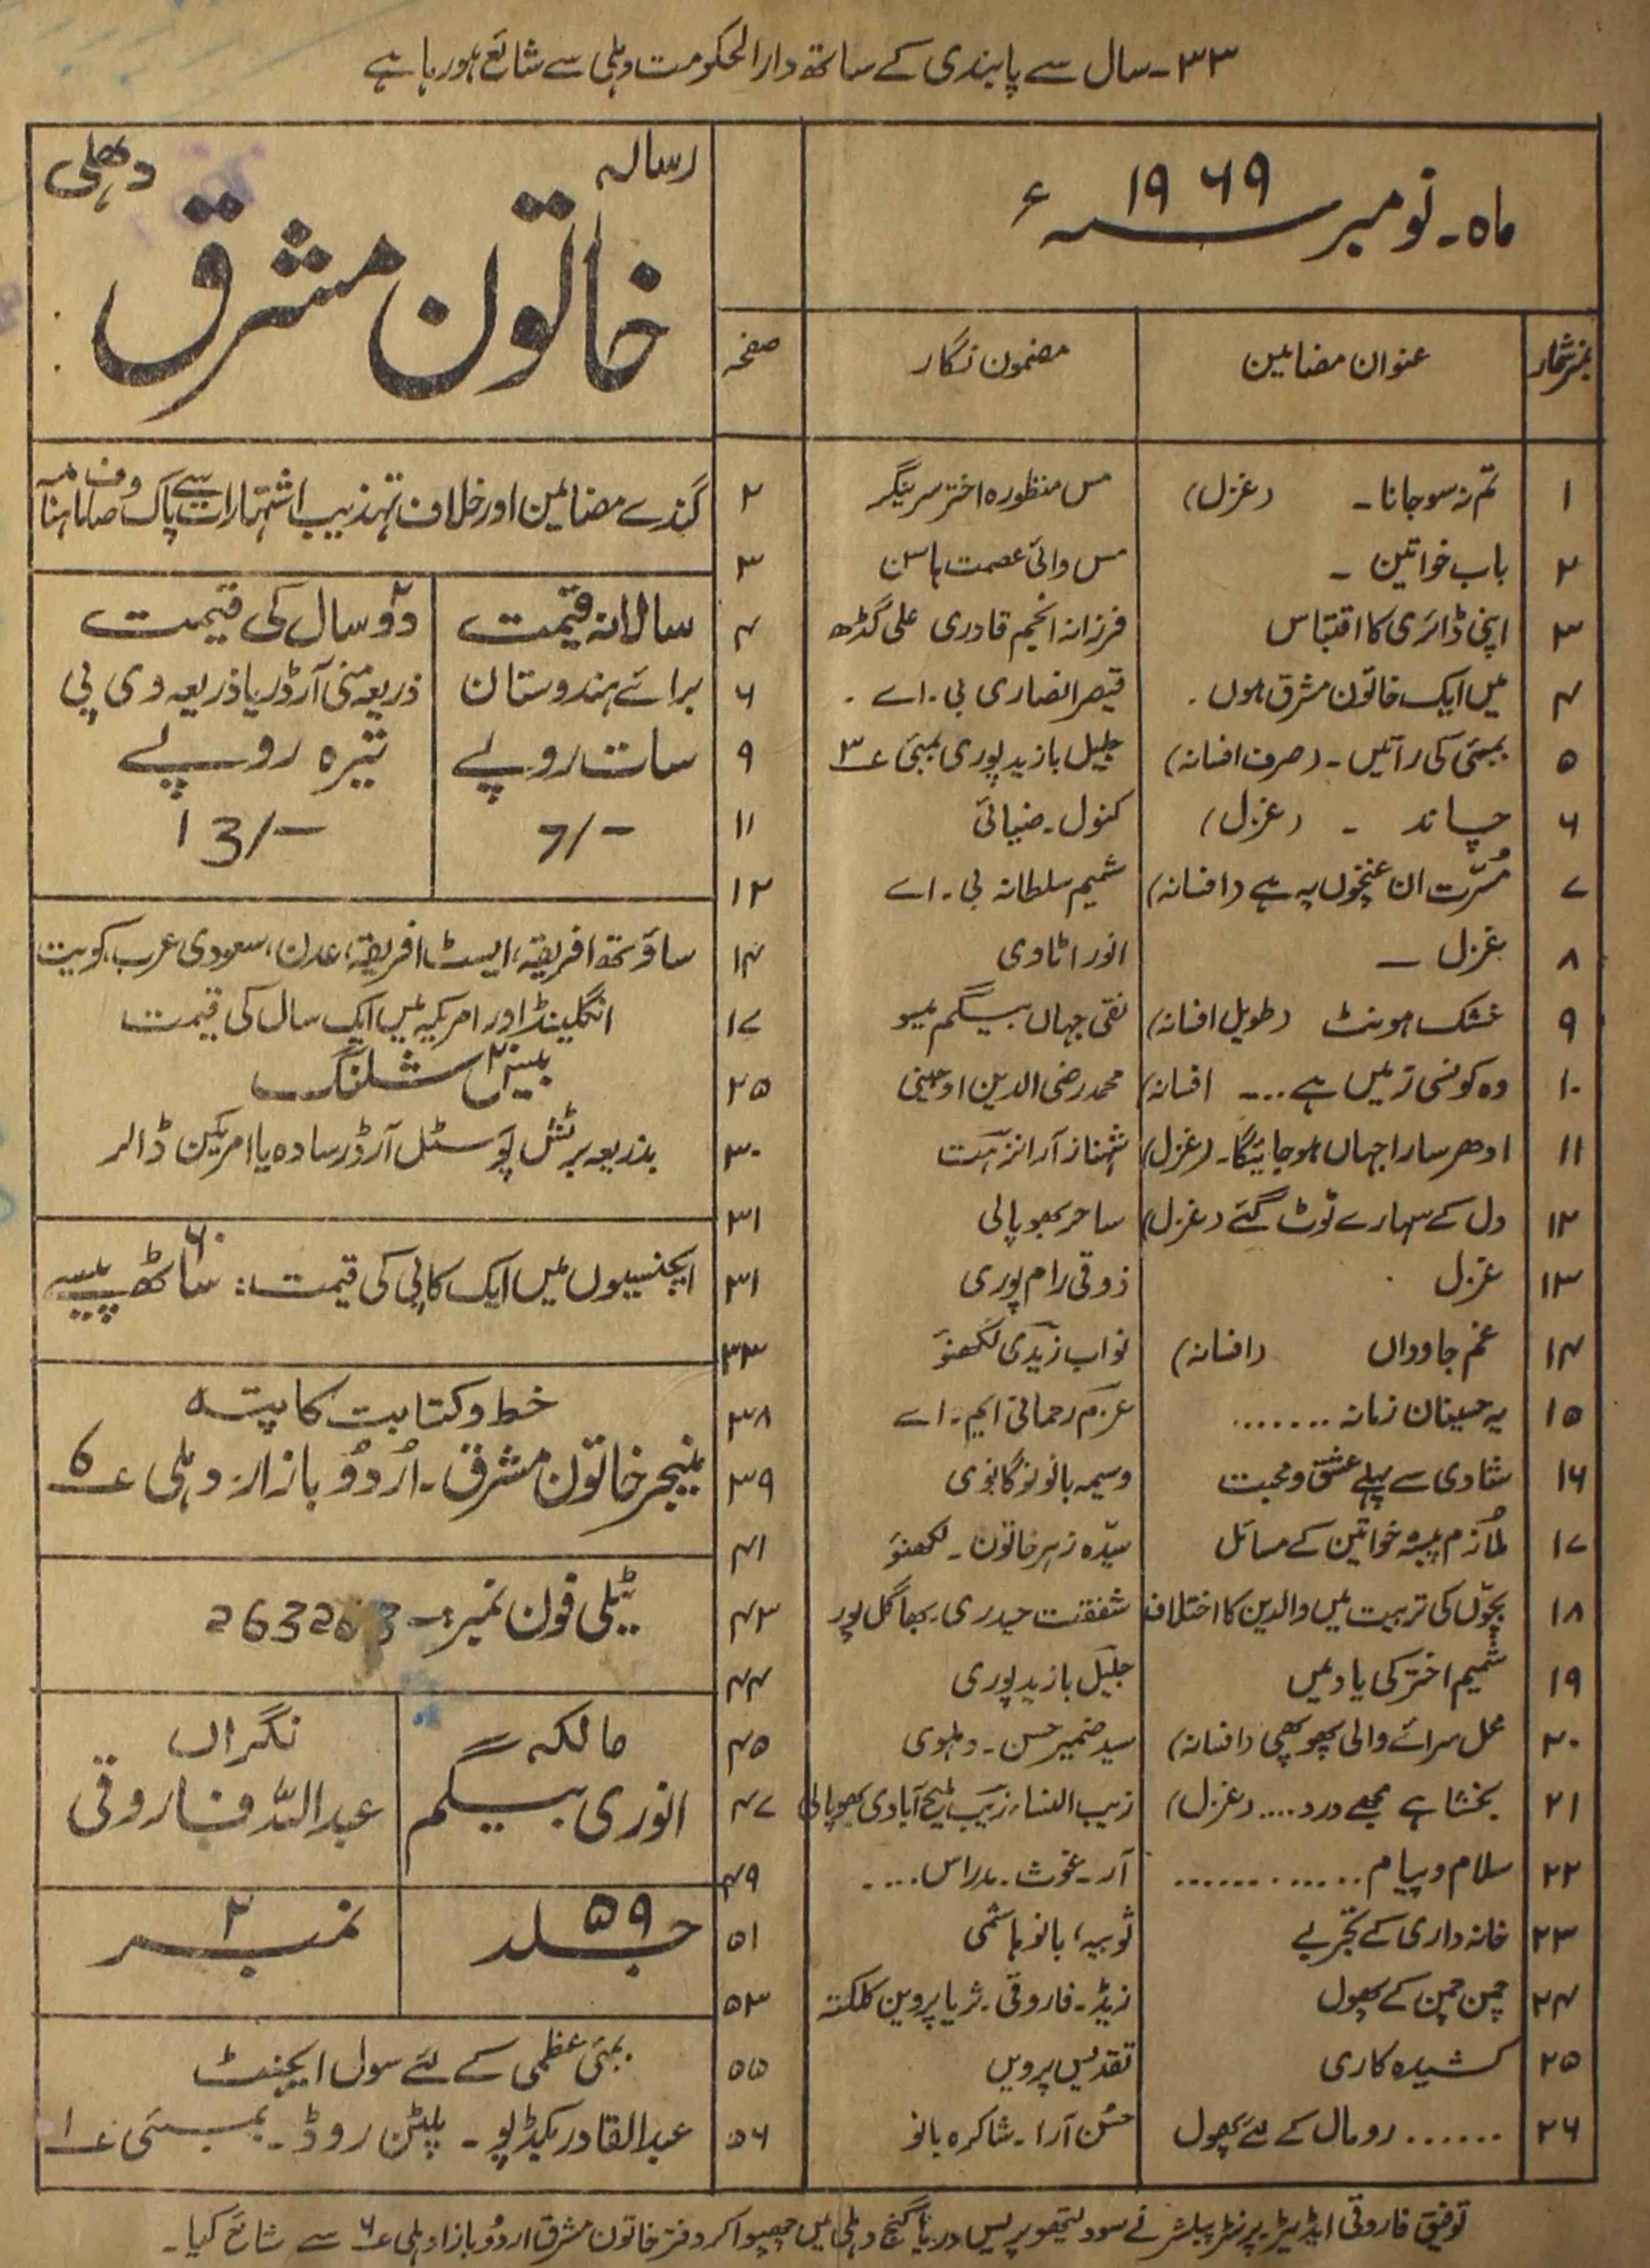 ۳۳۔ سال سے پابندی کے ساتھ دارالحکومت دہلی سے شائع ہورہا ہے
ماہ۔ نومبر ۱۹۶۹ء
نمبرشمار عنوان مضامین مضمون نگار صفحہ
۱ تم نہ سوجانا۔ (غزل) مس منظورہ اختر سرینگر ۲
۲ باب خواتین ۔ مس وائی عصمت باسن ۳
۳ اپنی ڈائری کا اقتباس فرزانہ انجم قادری علی گڈھ ۴
۴ میں ایک خاتون مشرق ہوں۔ قیصر انصاری بی۔اے۔ ۶
۵ بمبئی کی راتیں۔ (صرف افسانہ) جلیل بازید پوری بمبئی ۳ ۹
۶ چاند ۔ (غزل) کنول۔ضیائی ۱۱
۷ مُسرّت ان غنچوں پہ ہے (افسانہ) شمیم سلطانہ بی۔اے ۱۲
۸ غزل ۔ انور اٹاوی ۱۴
۹ خشک ہونٹ (طویل افسانہ) نقی جہاں بیگم میو ۱۷
۱۰ وہ کونسی زمیں ہے .... افسانہ) محمد رضی الدین اوجینی ۲۵
۱۱ ادھر سارا جہاں ہوجائیگا۔ (غزل) شہناز آرا نزہت ۳۰
۱۲ دل کے سہارے ٹوٹ گئے (غزل) ساحر بھوپالی ۳۱
۱۳ غزل ذوقی رام پوری ۳۱
۱۴ غم جاوداں (افسانہ) نواب زیدی لکھنؤ ۳۳
۱۵ یہ حسینان زمانہ ....... عزم رحمانی ایم۔اے ۳۸
۱۶ شادی سے پہلے عشق و محبت وسیمہ بانو نوگانوی ۳۹
۱۷ ملازم پیشہ خواتین کے مسائل سیّدہ زہر خاتون۔ لکھنؤ ۴۱
۱۸ بچّوں کی تربیت میں والدین کا اختلاف شفقت حیدری۔بھاگل پور ۴۳
۱۹ شمیم اختر کی یاد میں جلیل بازید پوری ۴۴
۲۰ محل سرائے والی پھوپھی (افسانہ) سید ضمیر حسن۔ دہلوی ۴۵
۲۱ بخشا ہے مجھے درد .... (غزل) زیب النساء زیب ملیح آبادی بھوپالی ۴۷
۲۲ سلام و پیام ............ آر۔ غوث۔ مدراس.... ۴۹
۲۳ خانہ داری کے تجربے ثوبیہ، بانو ہاشمی ۵۱
۲۴ چمن چمن کے پھول زیڈ۔ فاروقی۔ ثریا پروین کلکتہ ۵۳
۲۵ کشیدہ کاری تقدیس پرویں ۵۵
۲۶ ...... رومال کے لئے پھول حسن آرا۔ شاکرہ بانو ۵۶
رسالہ
خاتون مشرق
دھلی
گندے مضامین اور خلاف تہذیب اشتہارات سے پاک و صاف ماہنامہ
سالانہ قیمت
برائے ہندوستان
سات روپے
7/-
دو۲ سال کی قیمت
ذریعہ منی آرڈر یا ذریعہ وی پی
تیرہ روپے
13/-
ساؤتھ افریقہ، ایسٹ افریقہ، عدن، سعودی عرب، کویت
انگلینڈ اور امریکہ میں ایک سال کی قیمت
بیس۲۰ شلنگ
بذریعہ برٹش پوسٹل آرڈر سادہ یا امریکن ڈالر
ایجنسیوں میں ایک کاپی کی قیمت: ۶۰ ساٹھ پیسے
خط و کتابت کا پتہ
منیجر خاتون مشرق۔ اُردُو بازار۔ دہلی ۶
ٹیلی فون نمبر:-
مالکہ
انوری بیگم
نگراں
عبداللہ فاروقی
جلد ۵۹
نمبر ۲
بمبئی عظمی کے لئے سول ایجنٹ
عبدالقادر بکڈپو۔ پلٹن روڈ۔ بمبئی ۱
توفیق فاروقی ایڈیٹر، پرنٹر پبلشر نے سود لیتھو پریس دریا گنج دہلی میں چھپوا کر دفتر خاتون مشرق اردو بازار دہلی ۶ سے شائع کیا۔